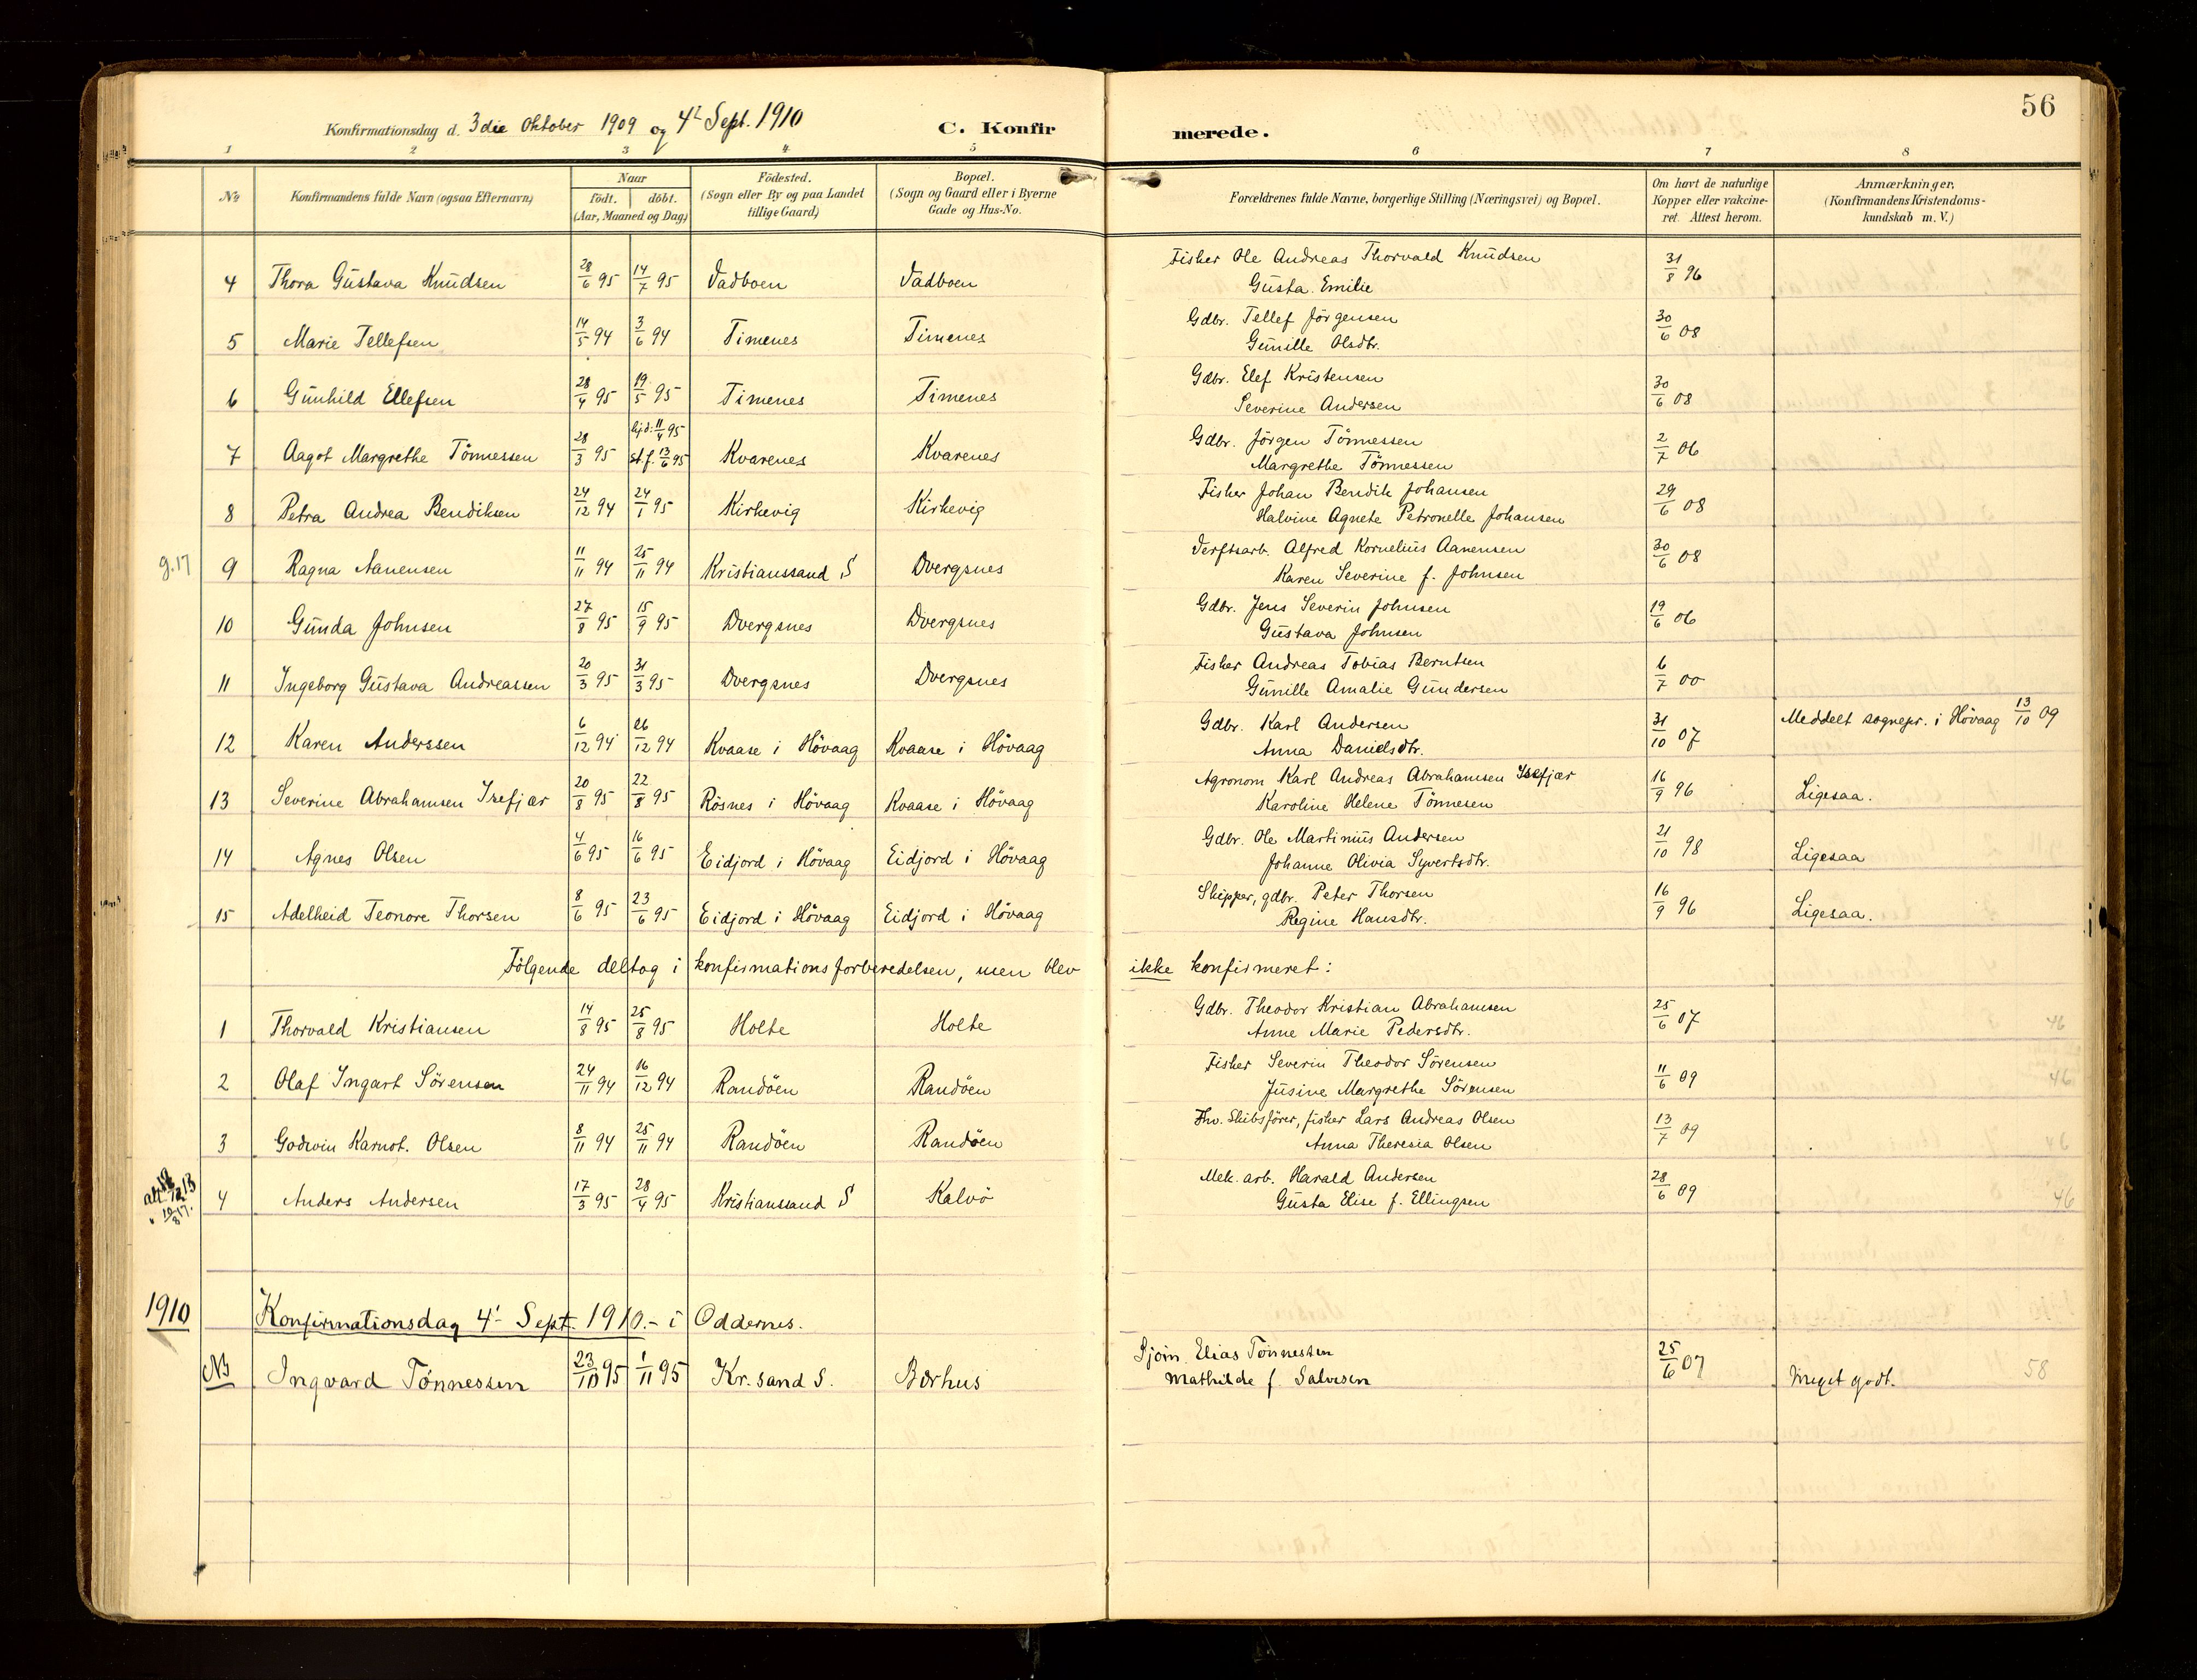 56
Konfirmationsdag d. 3die Oktober 1909 og 4de Sept. 1910 C. Konfir merede.
1 2 3 4 5 6 7 8
No
Konfirmandens fulde Navn (ogsaa Efternavn)
Naar
födt. döbt.
(Aar, Maaned og Dag)
Födested.
(Sogn eller By og paa Landet
tillige Gaard)
Bopæl.
(Sogn og Gaard eller i Byerne
Gade og Hus-No.
Forældrenes fulde Navne, borgerlige Stilling (Næringsvei) og Bopæl.
Om havt de naturlige
Kopper eller vakcine-
ret. Attest herom.
Anmærkninger,
(Konfirmandens Kristendoms-
kundskab m. V.)
4 Thora Gustava Knudsen 28/6 95 14/7 95 Vadboen Vadboen Fisker Ole Andreas Thorvald Knudsen 31/8 96
Gusta Emilie
5 Marie Tellefsen 14/5 94 3/6 94 Timenes Timenes Gdbr. Tellef Jörgensen 30/6 08
Gunille Olsdtr.
6 Gunhild Ellefsen 28/4 95 19/5 95 Timenes Timenes Gdbr. Elef Kristensen 30/6 08
Severine Andersen
7 Aagot Margrethe Tönnessen 28/3 95 hjd: 11/4 95 st. f. 13/6 95 Kvarenes Kvarenes Gdbr. Jörgen Tönnessen 2/7 06
Margrethe Tönnessen
8 Petra Andrea Bendiksen 24/12 94 24/1 95 Kirkevig Kirkevig Fisker Johan Bendik Johansen 29/6 08
Halvine Agnete Petronelle Johansen
g. 17 9 Ragna Aanensen 11/11 94 25/11 94 Kristianssand S Dvergsnes Verftsarb. Alfred Kornelius Aanensen 30/6 08
Karen Severine f. Johnsen
10 Gunda Johnsen 27/8 95 15/9 95 Dvergsnes Dvergsnes Gdbr. Jens Severin Johnsen 19/6 06
Gustava Johnsen
11 Ingeborg Gustava Andreassen 20/3 95 31/3 95 Dvergsnes Dvergsnes Fisker Andreas Tobias Berntsen 6/7 00
Gunille Amalie Gundersen
12 Karen Anderssen 6/12 94 26/12 94 Kvaase i Hövaag Kvaase i Hövaag Gdbr. Karl Andersen 31/10 07 Meddelt sognepr. i Hövaag 13/10 09
Anna Danielsdtr.
13 Severine Abrahamsen Isefjær 20/8 95 22/8 95 Rösnes i Hövaag Kvaase i Hövaag Agronom Karl Andreas Abrahamsen Isefjær 16/9 96 Ligesaa.
Karoline Helene Tönnesen
14 Agnes Olsen 4/6 95 16/6 95 Eidjord i Hövaag Eidjord i Hövaag Gdbr. Ole Martinius Andersen 21/10 98 Ligesaa
Johanne Olivia Syvertsdtr.
15 Adelheid Teonore Thorsen 8/6 95 23/6 95 Eidjord i Hövaag Eidjord i Hövaag Skipper, gdbr. Peter Thorsen 16/9 96 Ligesaa.
Regine Hansdtr.
Fölgende deltog i konfirmationsforberedelsen, men blev ikke konfirmeret:
1 Thorvald Kristiansen 14/8 95 25/8 95 Holte Holte Gdbr. Theodor Kristian Abrahamsen 25/6 07 46
Anne Marie Pedersdtr.
2 Olaf Ingart Sörensen 24/11 94 16/12 94 Randöen Randöen Fisker Severin Theodor Sörensen 11/6 09 46
Jusine Margrethe Sörensen
3 Godwin Karnot. Olsen 8/11 94 25/11 94 Randöen Randöen Fhv. Skibsförer, fisker Lars Andreas Olsen 13/7 09 46
Anna Theresia Olsen
4 Anders Andersen 17/3 95 28/4 95 Kristianssand S Kalvö Mek. arb. Harald Andersen 28/6 09 46
Gusta Elise f. Ellingsen
1910 Konfirmationsdag 4' Sept. 1910.- i Oddernes.
NB Ingvard Tönnessen 23/10 95 1/11 95 Kr.sand S. Bærhus Sjöm. Elias Tönnessen 25/6 07 Meget godt. 58
Mathilde f. Salvesen